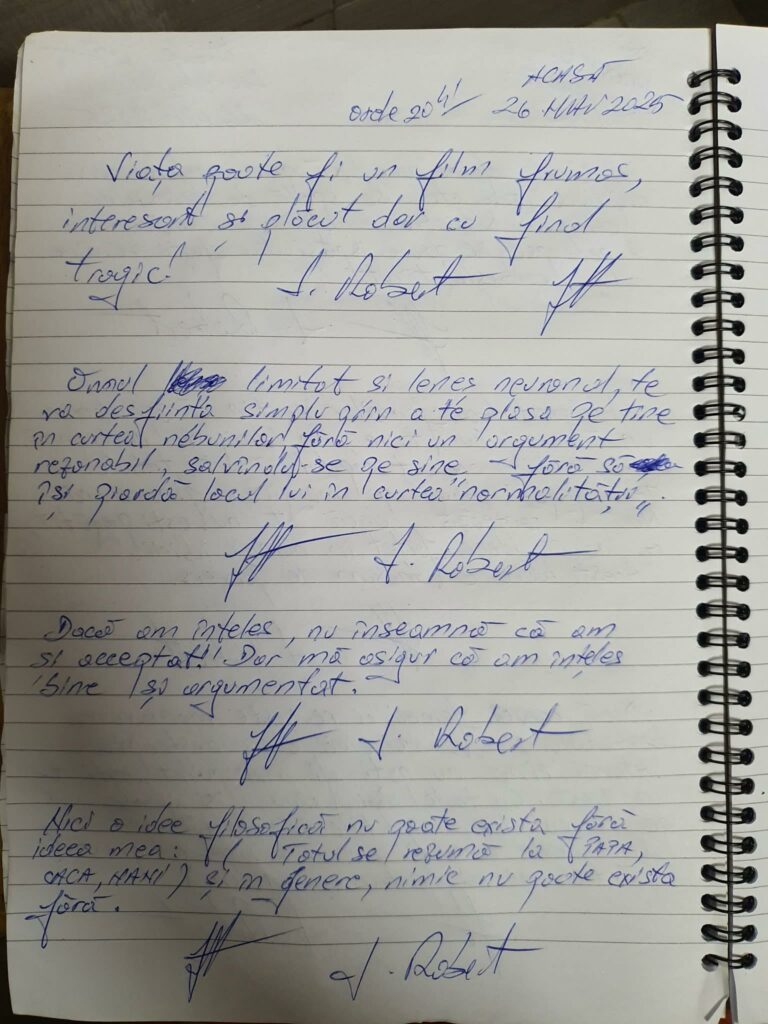 ACASĂ
orele 20 41' 26 MAI 2025
Viața poate fi un film frumos,
interesant și plăcut dar cu final
tragic!
J. Robert
Omul limitat si lenes neuronul, te
va desființa simplu prin a te plasa pe tine
în curtea nebunilor fără nici un argument
rezonabil, salvîndu-se pe sine, fără să
își piardă locul lui în curtea "normalității".
J. Robert
Dacă am înțeles, nu înseamnă că am
si acceptat! Dar mă asigur că am înțeles
bine și argumentat.
J. Robert
Nici o idee filosofică nu poate exista fără
ideea mea: ( Totul se rezumă la PAPA,
CACA, NANI ) și în genere, nimic nu poate exista
fără.
J. Robert